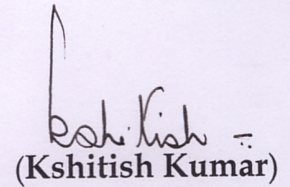 Kshitish
(Kshitish Kumar)